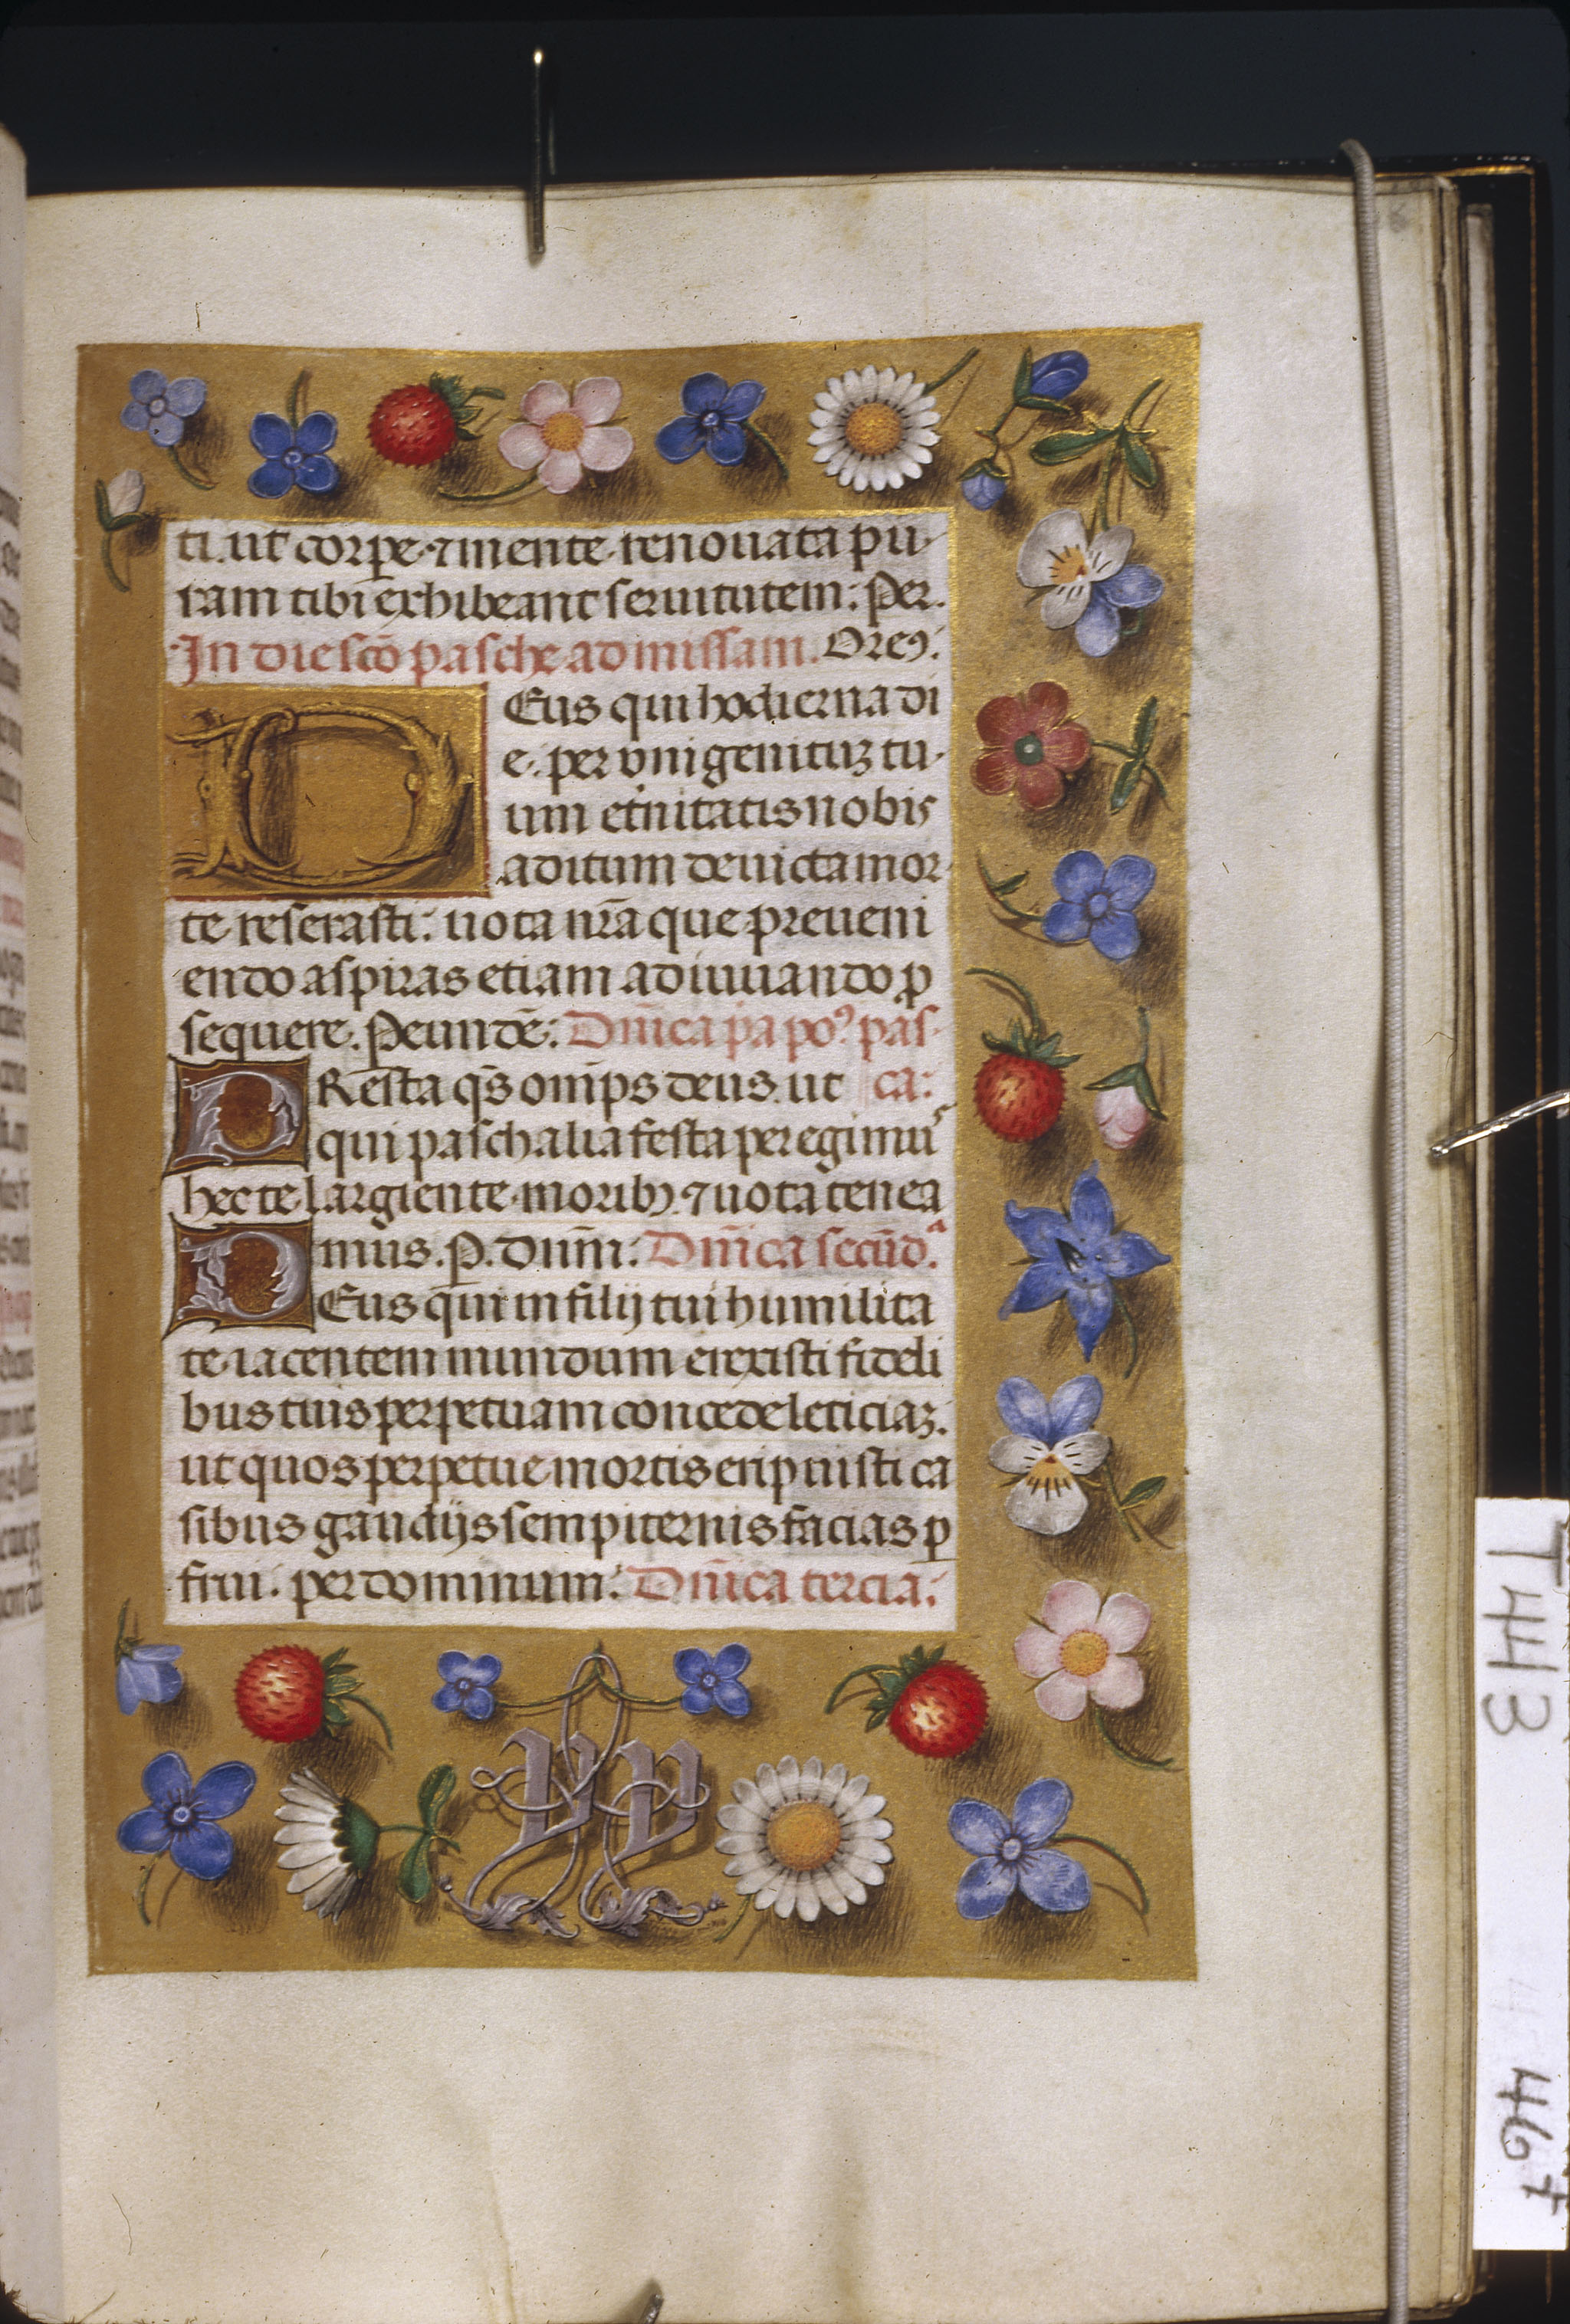 ti. ut corpe ⁊ mente renouata pu-
ram tibi exhibeant seruitutem: Per.
In die scō pasche ad missam. Orem9.
DEus qui hodierna di
e. per vnigenituʒ tu-
um et'nitatis nobis
aditum deuicta mor-
te reserasti: uota nr̄a que preueni
endo aspiras etiam adiuuando ꝓ
sequere. Peundē: Dn̄ica pa po9 pas-
PResta qs̄ om̄ps deus. ut ca:
qui paschalia festa peregimus
hec te largiente moribꝫ ⁊ uota tenea
mus. p. dum̄: Dn̄ica secūda.
DEus qui in filij tui humilita
te iacentem mundum erexisti fideli
bus tuis perpetuam concede leticiaʒ.
ut quos perpetue mortis eripuisti ca
sibus gaudijs sempiternis facias ꝑ
frui. per dominum: Dn̄ica tercia:
T443
467